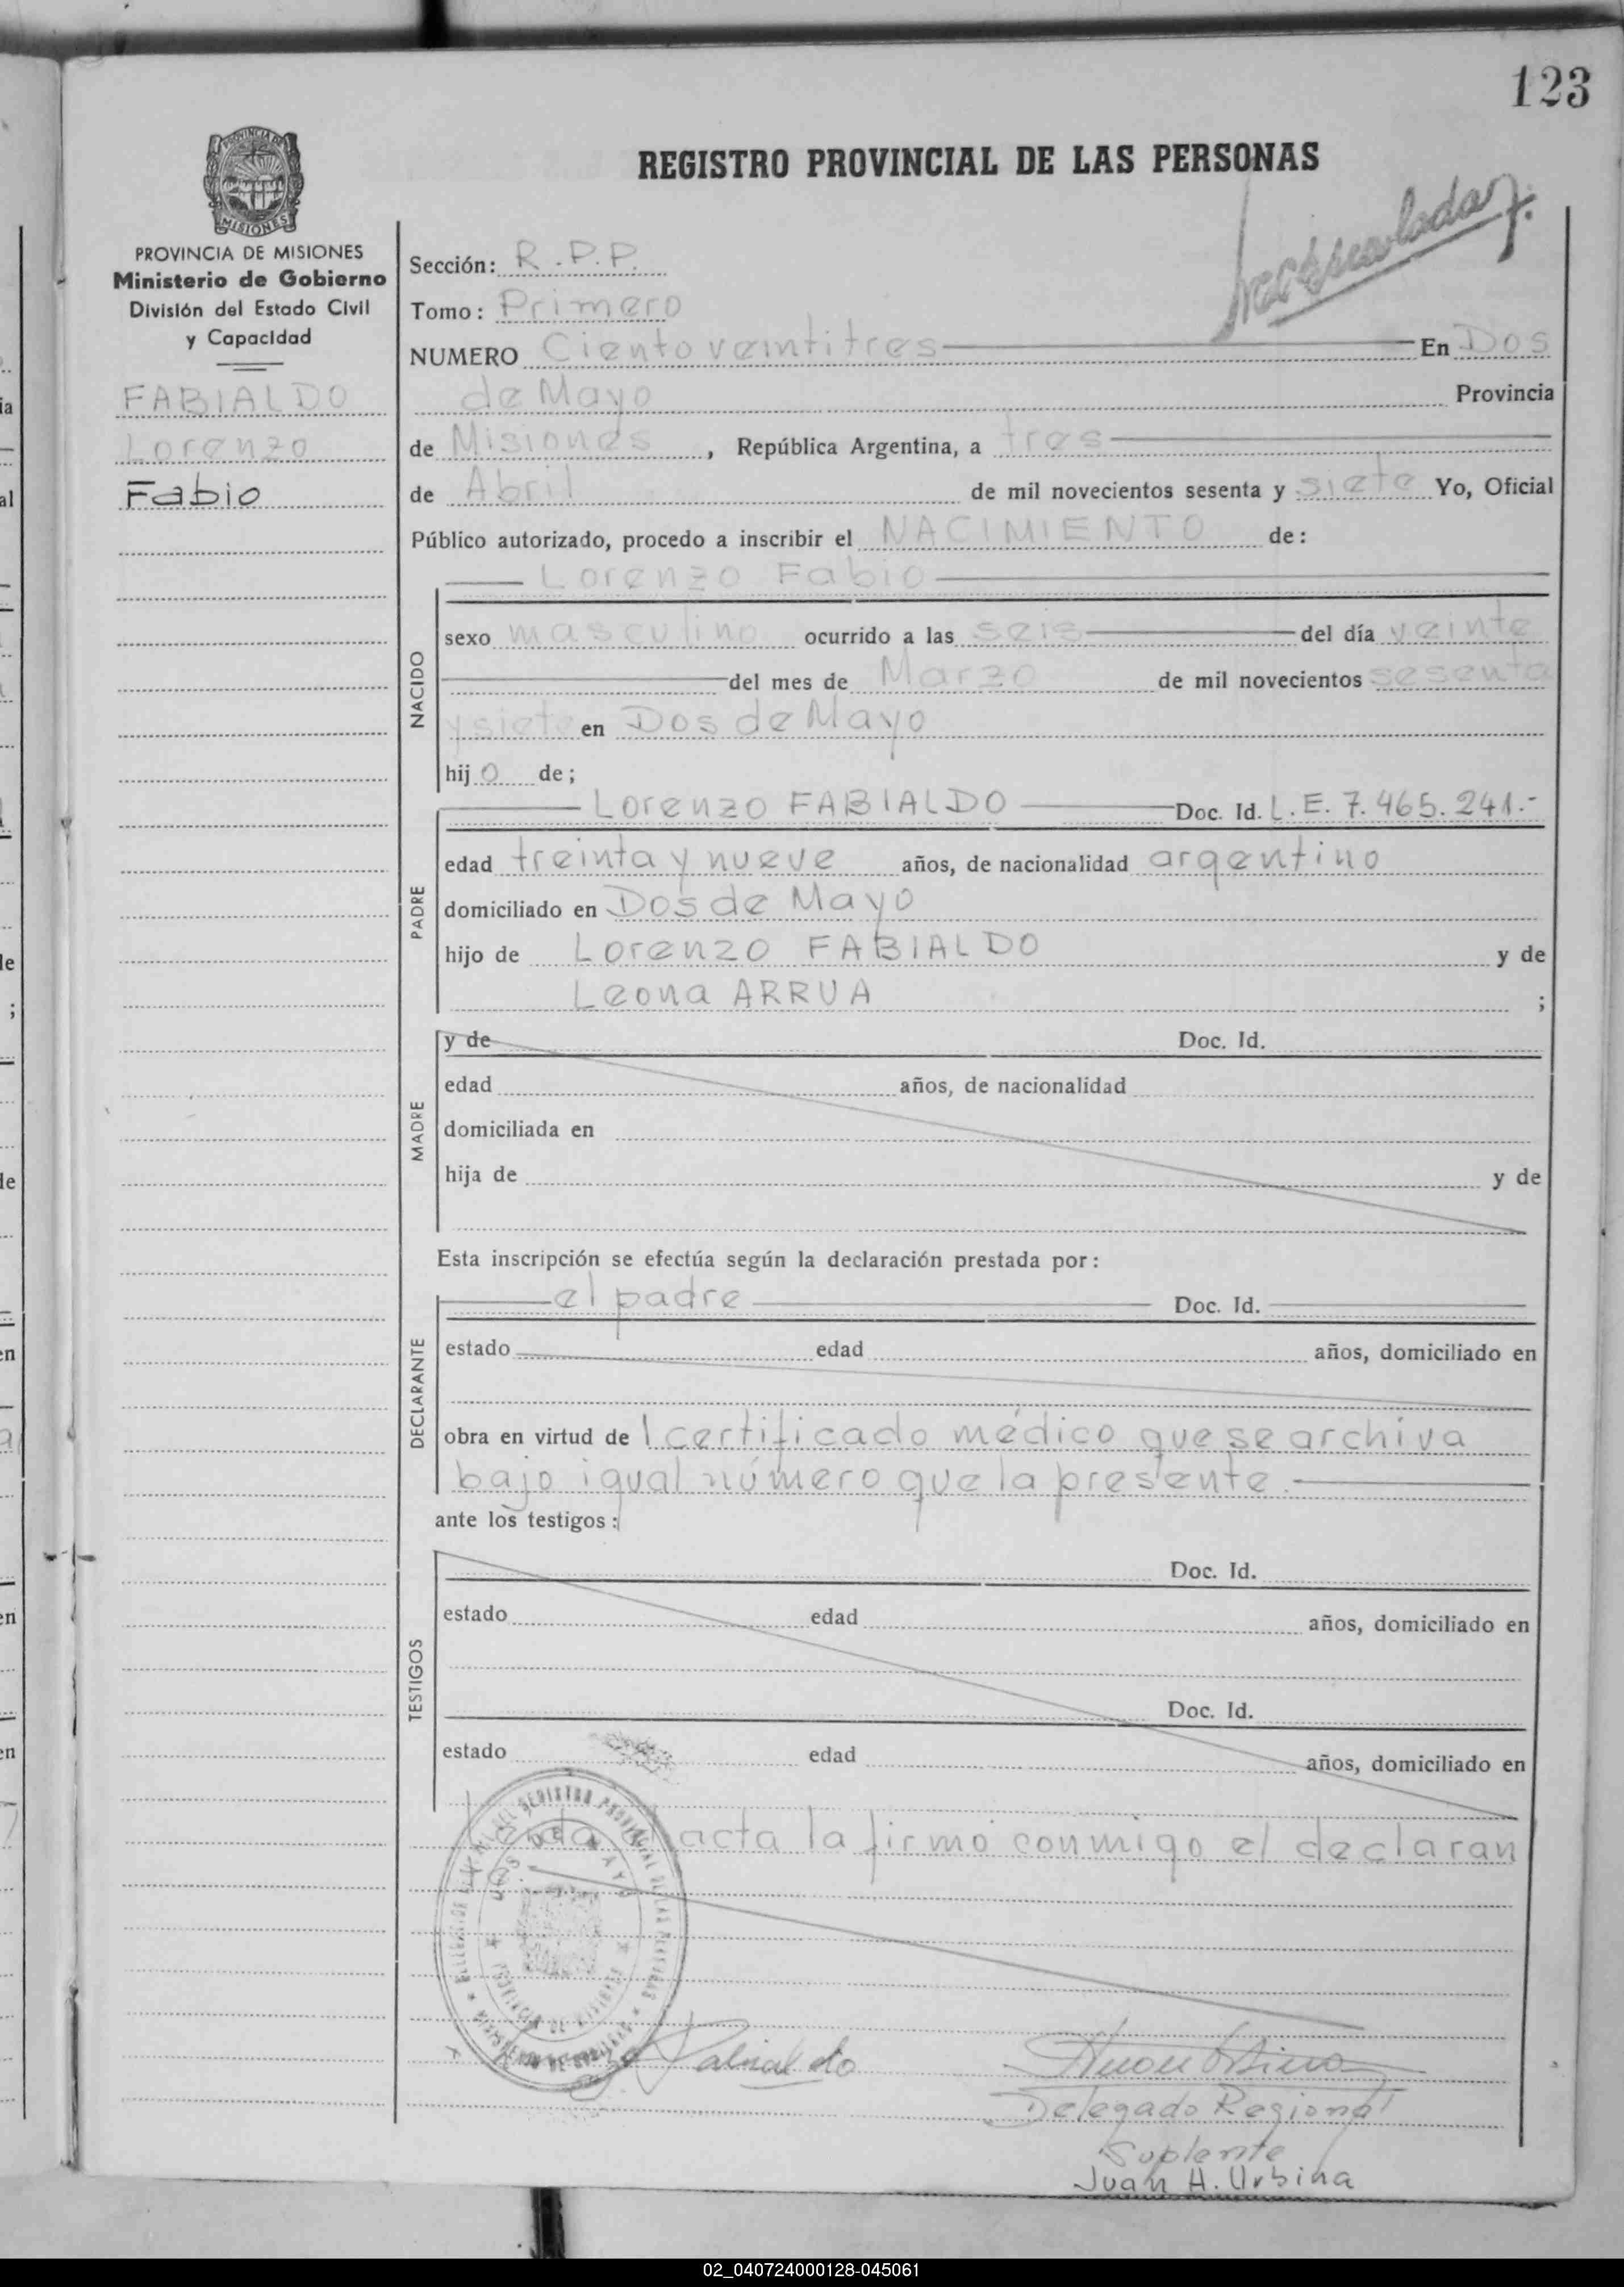 123
REGISTRO PROVINCIAL DE LAS PERSONAS
PROVINCIA DE MISIONES
Ministerio de Gobierno
División del Estado Civil
y Capacidad
FABIALDO
Lorenzo
Fabio
Sección: R.P.P.
Tomo: Primero
NUMERO Ciento veintitres En Dos
de Mayo Provincia
de Misiones, República Argentina, a tres
de Abril de mil novecientos sesenta y siete Yo, Oficial
Público autorizado, procedo a inscribir el NACIMIENTO de:
Lorenzo Fabio
NACIDO
sexo masculino ocurrido a las seis del día veinte
del mes de Marzo de mil novecientos sesenta
y siete en Dos de Mayo
hijo de;
PADRE
Lorenzo FABIALDO Doc. Id. L.E. 7.465.241.-
edad treinta y nueve años, de nacionalidad argentino
domiciliado en Dos de Mayo
hijo de Lorenzo FABIALDO y de
Leona ARRUA ;
MADRE
y de Doc. Id.
edad años, de nacionalidad
domiciliada en
hija de y de
Esta inscripción se efectúa según la declaración prestada por:
DECLARANTE
el padre Doc. Id.
estado edad años, domiciliado en
obra en virtud de 1 certificado médico que se archiva
bajo igual número que la presente.
ante los testigos:
TESTIGOS
Doc. Id.
estado edad años, domiciliado en
Doc. Id.
estado edad años, domiciliado en
Leida el acta la firmo conmigo el declaran
DOS DE MAYO
Fabialdo
Delegado Regional
Suplente
Juan H. Urbina
02_040724000128-045061